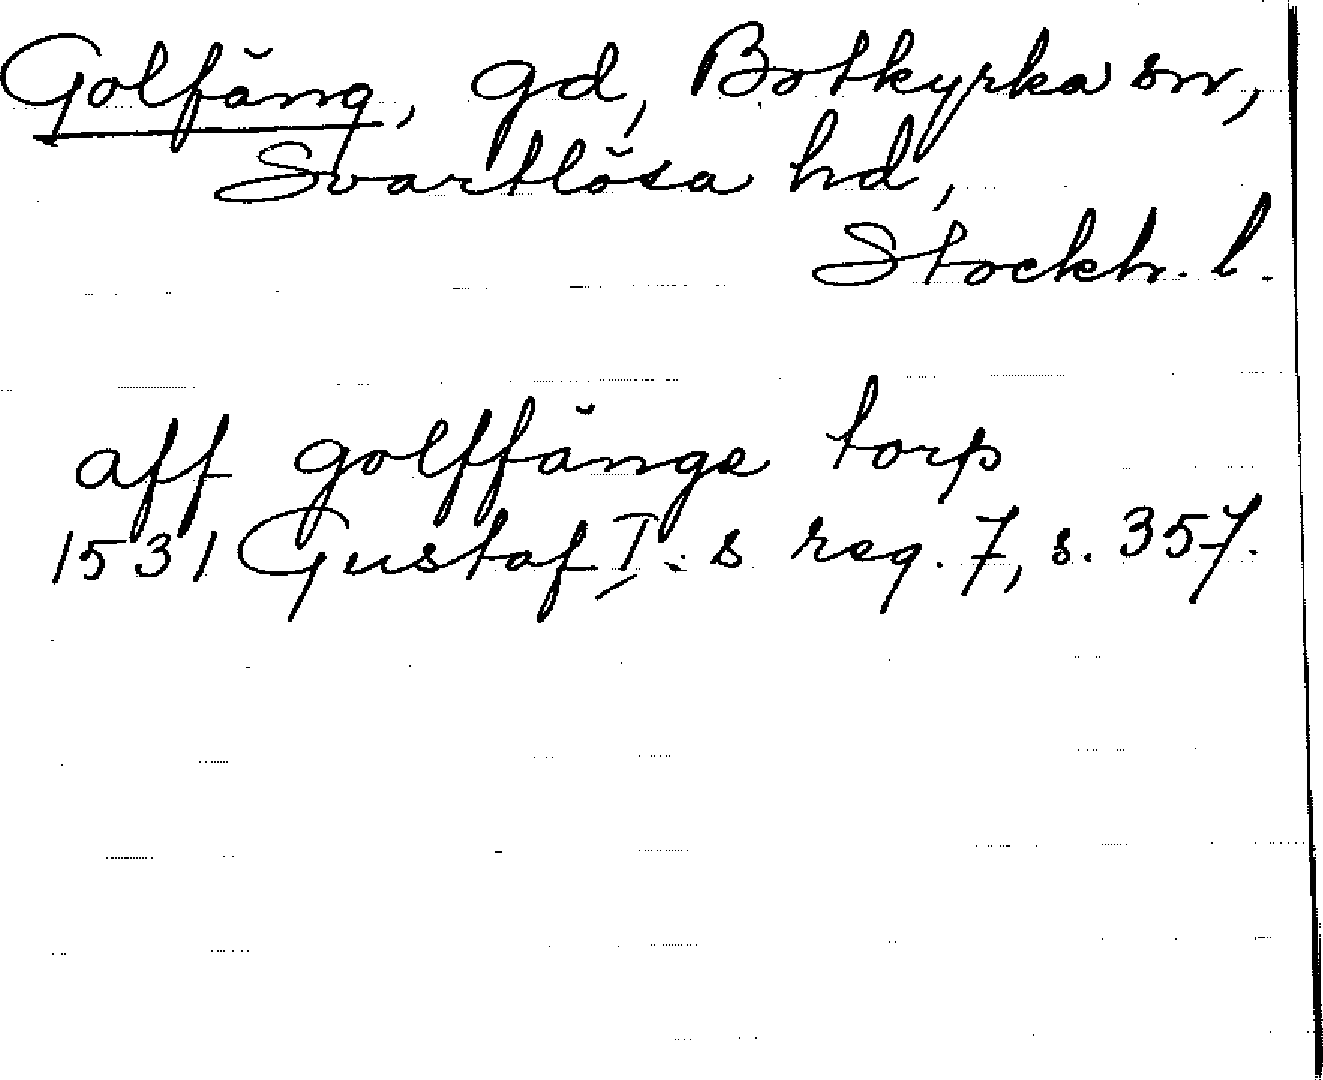 Golfäng, gd, Botkyrka sn,
Svartlösa hd,
Stockh. l.
aff golffänge torp
1531 Gustaf I:s reg. 7, s. 357.